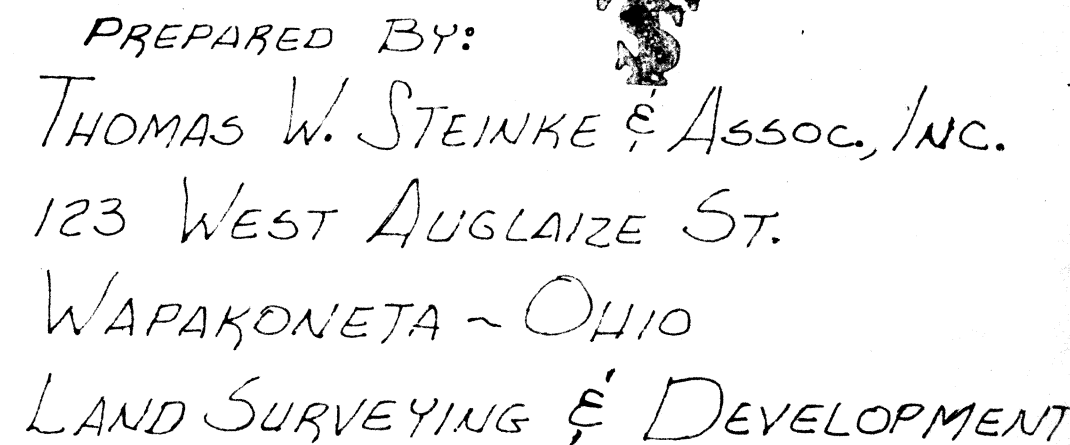 PREPARED BY:
THOMAS W. STEINKE & ASSOC., INC.
123 WEST AUGLAIZE ST.
WAPAKONETA ~ OHIO
LAND SURVEYING & DEVELOPMENT